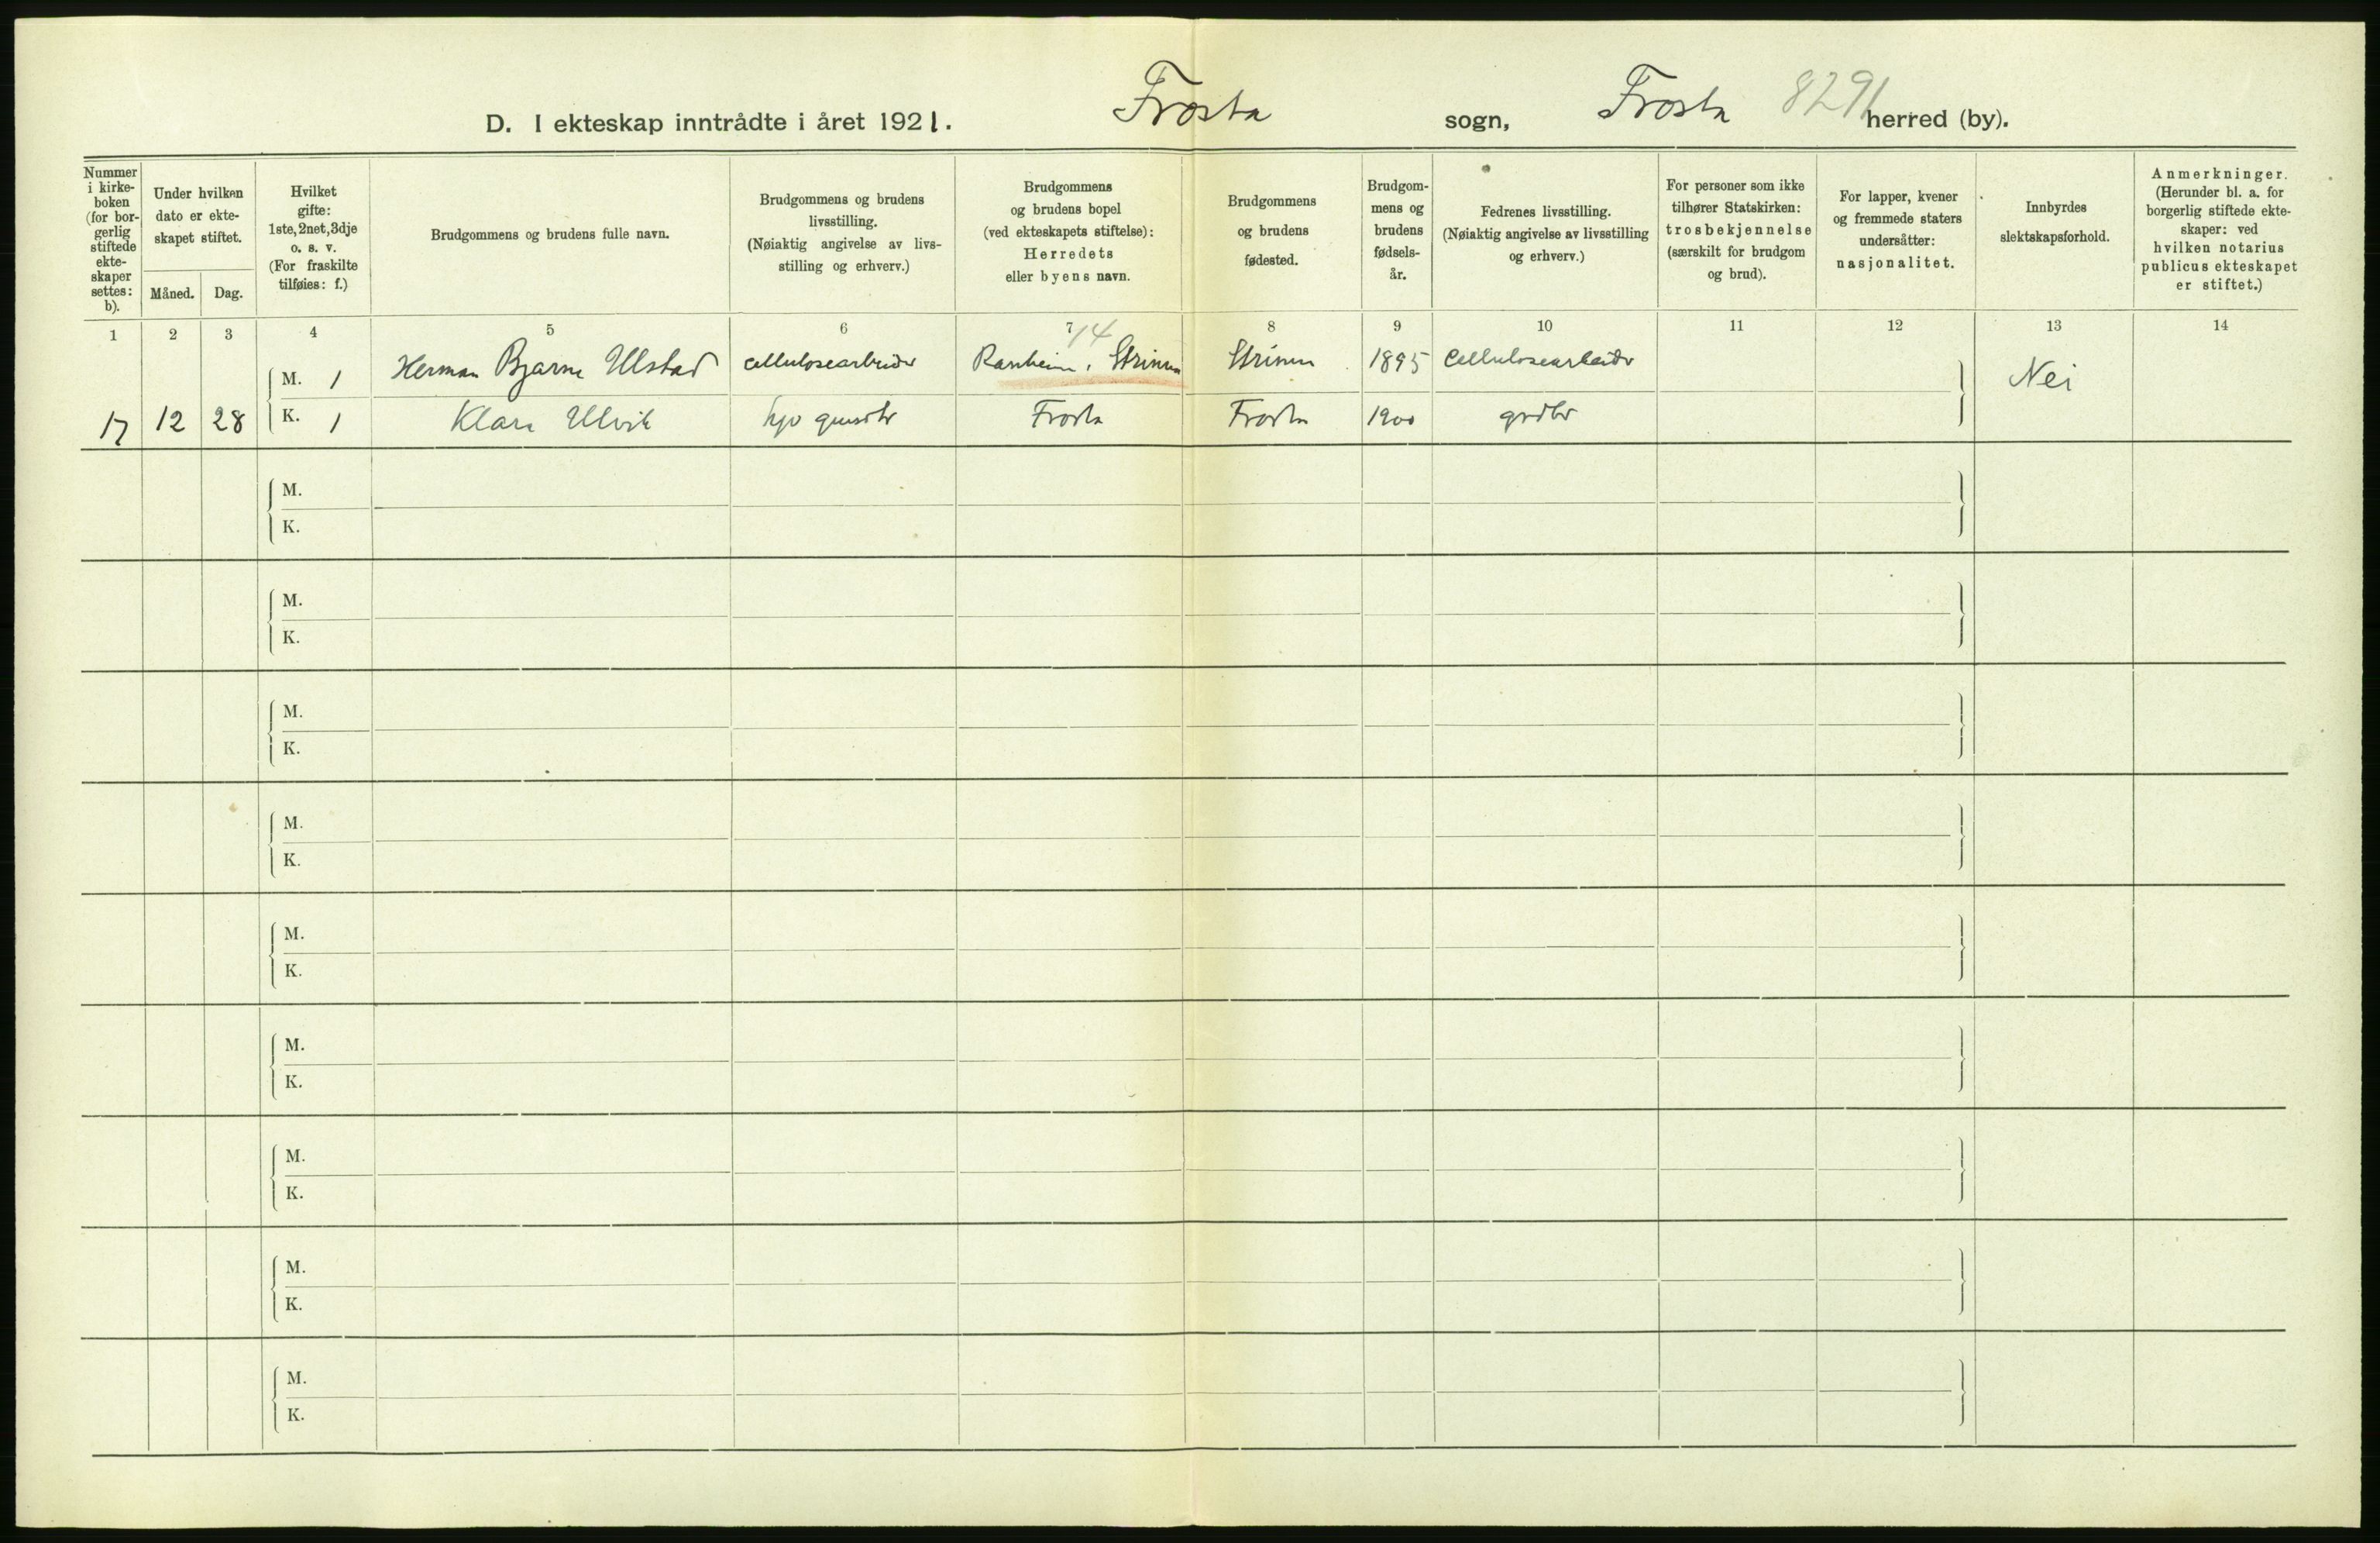 D. I ekteskap inntrådte i året 1921. Frosta sogn, Frosta 8291 herred (by).
Nummer
i kirke-
boken
(for bor-
gerlig
stiftede
ekte-
skaper
settes:
b).
Under hvilken
dato er ekte-
skapet stiftet.
Måned. Dag.
Hvilket
gifte:
1ste, 2net, 3dje
o. s. v.
(For fraskilte
tilføies: f.)
Brudgommens og brudens fulle navn.
Brudgommens og brudens
livsstilling.
(Nøiaktig angivelse av livs-
stilling og erhverv.)
Brudgommens
og brudens bopel
(ved ekteskapets stiftelse):
Herredets
eller byens navn.
Brudgommens
og brudens
fødested.
Brudgom-
mens og
brudens
fødsels-
år.
Fedrenes livsstilling.
(Nøiaktig angivelse av livsstilling
og erhverv.)
For personer som ikke
tilhører Statskirken:
trosbekjennelse
(særskilt for brudgom
og brud).
For lapper, kvener
og fremmede staters
undersåtter:
nasjonalitet.
Innbyrdes
slektskapsforhold.
Anmerkninger.
(Herunder bl. a. for
borgerlig stiftede ekte-
skaper: ved
hvilken notarius
publicus ekteskapet
er stiftet.)
1 2 3 4 5 6 7 8 9 10 11 12 13 14
14
M. 1 Herman Bjarne Ulstad cellulosearbeider Ranheim, Strinna Strinna 1895 Cellulosearbeider Nei
17 12 28 K. 1 Klara Ulvik Frosta Frosta 1900 grdbr
M.
K.
M.
K.
M.
K.
M.
K.
M.
K.
M.
K.
M.
K.
M.
K.
M.
K.